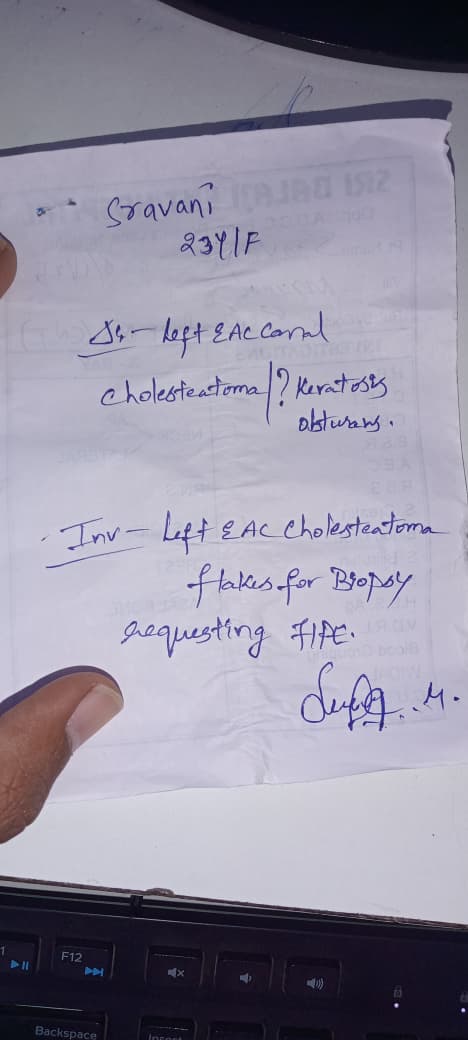 Sravani
23Y/F
Left EAC Canal
Cholesteatoma/? Keratosis
obturans.
Inv - Left EAC Cholesteatoma
flakes for Biopsy
requesting HPE.
SRI BALAJI
F12
Backspace
Insert